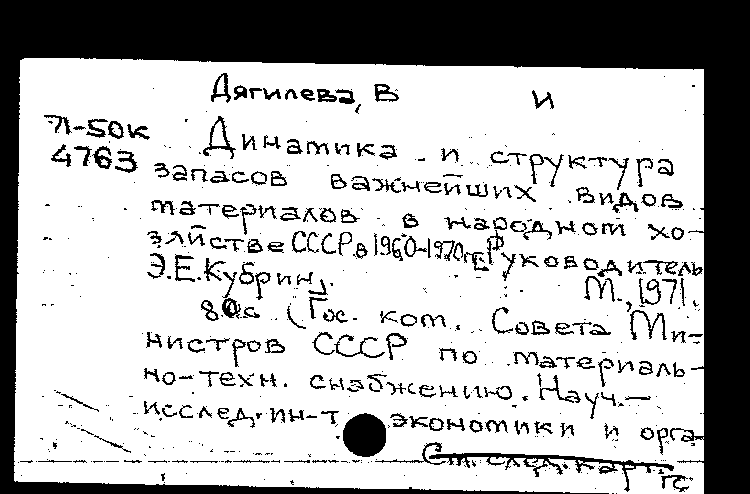 Дягилева, В И
71-50к
4763
Динамика и структура
запасов важнейших видов
материалов в народном хо-
зяйстве СССР в 1960-1970 гг. [Руководитель
Э.Е.Кубрин].
М., 1971.
80 с (Гос. ком. Совета Ми-
нистров СССР по материаль-
но-техн. снабжению. Науч.-
исслед. ин-т экономики и орга-
См. след. карт.